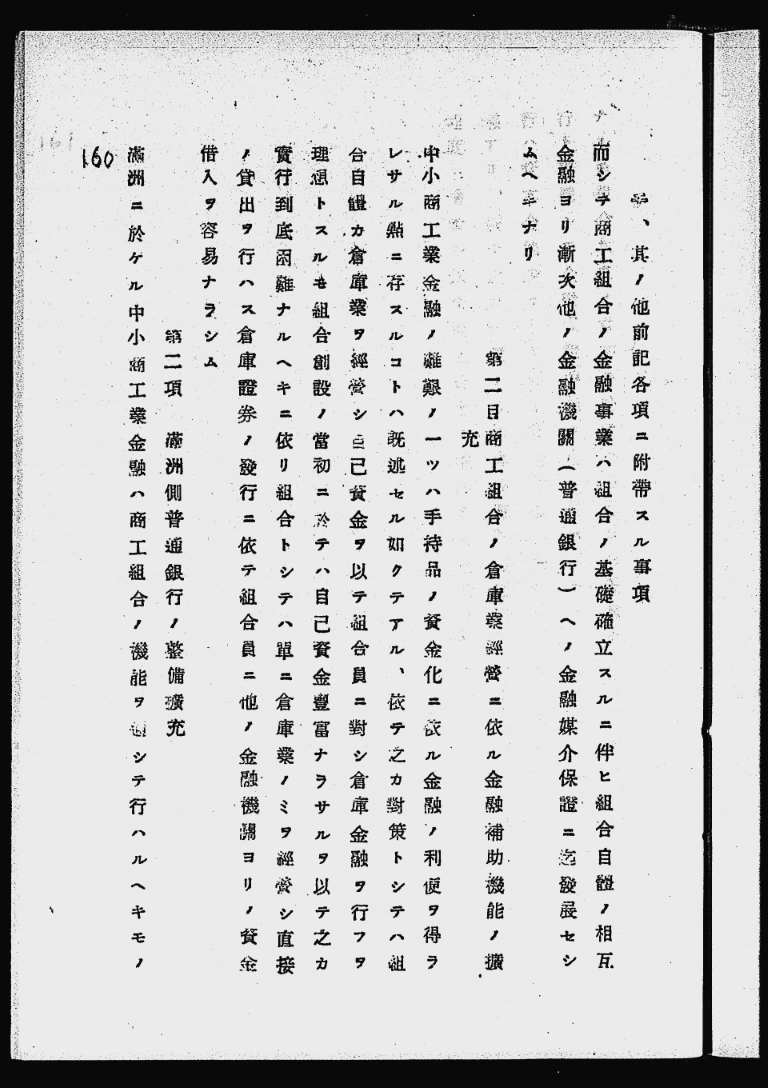 、其ノ他前記各項ニ附帶スル事項
而シテ商工組合ノ金融事業ハ組合ノ基礎確立スルニ伴ヒ組合自體ノ相互
金融ヨリ漸次他ノ金融機關（普通銀行）ヘノ金融媒介保證ニ迄發展セシ
ムヘキナリ
第二目 商工組合ノ倉庫業經營ニ依ル金融補助機能ノ擴
充
中小商工業金融ノ難艱ノ一ツハ手持品ノ資金化ニ依ル金融ノ利便ヲ得ラ
レサル點ニ存スルコトハ既述セル如クテアル、依テ之カ對策トシテハ組
合自體カ倉庫業ヲ經營シ自己資金ヲ以テ組合員ニ對シ倉庫金融ヲ行フヲ
理想トスルモ組合創設ノ當初ニ於テハ自己資金豐富ナラサルヲ以テ之カ
實行到底困難ナルヘキニ依リ組合トシテハ單ニ倉庫業ノミヲ經營シ直接
ノ貸出ヲ行ハス倉庫證券ノ發行ニ依テ組合員ニ他ノ金融機關ヨリノ資金
借入ヲ容易ナラシム
第二項 滿洲側普通銀行ノ整備擴充
滿洲ニ於ケル中小商工業金融ハ商工組合ノ機能ヲ通シテ行ハルヘキモノ
160